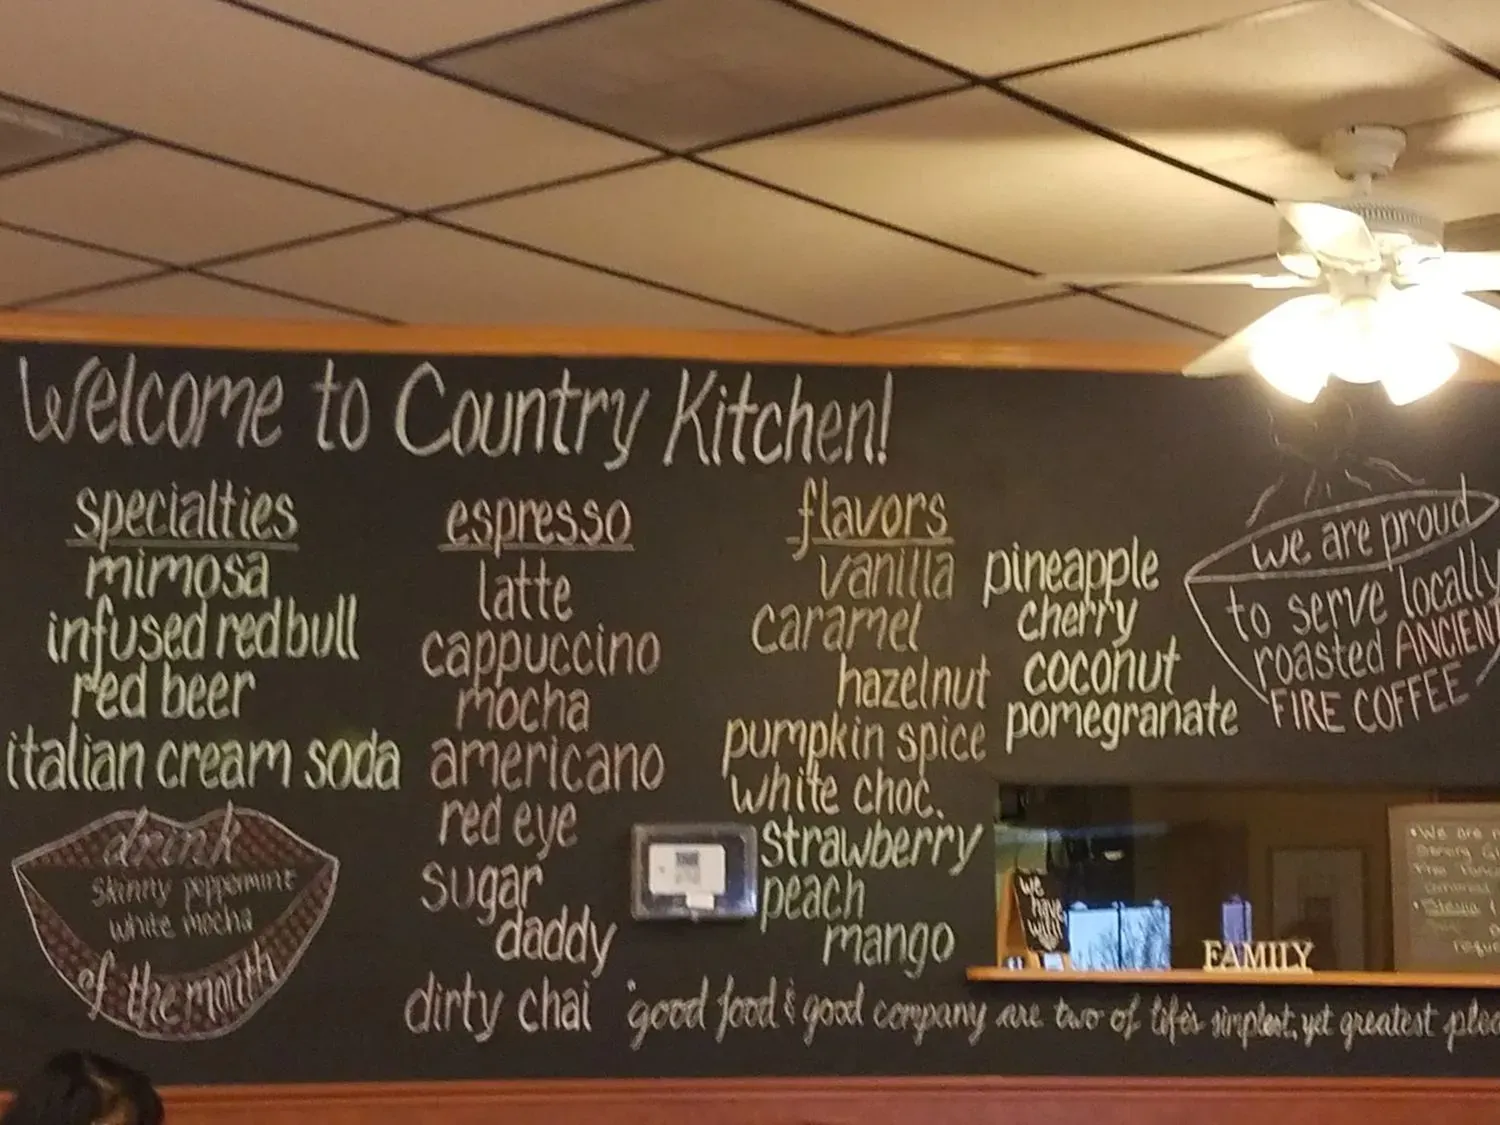 Welcome to Country Kitchen!
specialties
mimosa
infused redbull
red beer
italian cream soda
drink
skinny peppermint
white mocha
of the month
espresso
latte
cappuccino
mocha
americano
red eye
sugar
daddy
dirty chai
flavors
vanilla
caramel
hazelnut
pumpkin spice
white choc.
strawberry
peach
mango
pineapple
cherry
coconut
pomegranate
we are proud
to serve locally
roasted ANCIENT
FIRE COFFEE
we
have
wifi!
FAMILY
• We are
"good food & good company are two of life's simplest, yet greatest